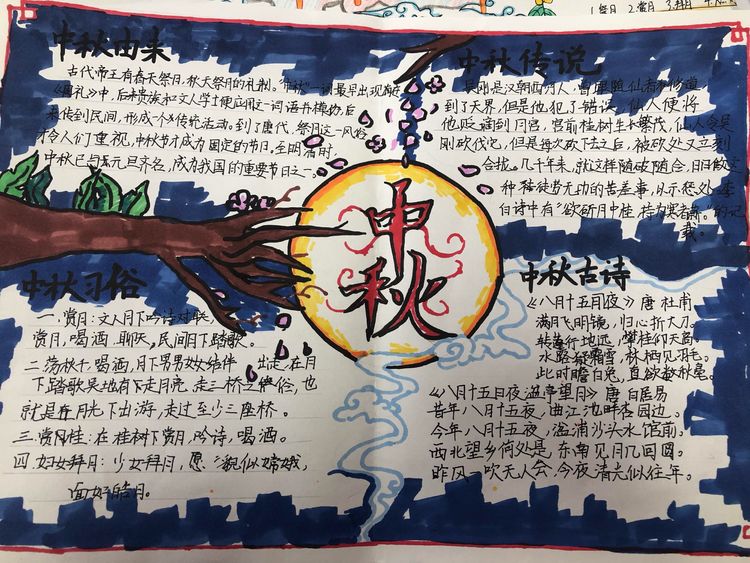 1.赏月 2.赏月 3.
中秋由来
古代帝王有春天祭日，秋天祭月的礼制。"中秋"一词最早出现在
《周礼》中，后来贵族和文人学士便应用这一词语并模仿，后
来传到民间，形成一个传统活动。到了唐代，祭月这一风俗
才令人们重视，中秋节才成为固定的节日，至明清时，
中秋已与元旦齐名，成为我国的重要节日之一。
中秋传说
吴刚是汉朝西河人，曾跟随仙者和修道，
到了天界，但是他犯了错误，仙人便将
他贬谪到月宫，宫前桂树生木繁茂，仙人令吴
刚砍伐它，但是每次砍下去之后，被砍处又立刻
合拢。几千年来，就这样随砍随合，日日做这
种徒劳无功的苦差事，从不怨处。李
白诗中有"欲斫月中桂，持为寒者薪。"的记
载。
中秋
中秋习俗
一.赏月：文人月下吟诗对联
赏月，喝酒，聊天，民间月下踏歌。
二.荡秋千，喝酒，月下男男女女结伴 出走，在月
下踏歌 走月亮，走三桥之 俗，也
就是在月光下出游，走过至少三座桥。
三.赏月桂：在桂树下赏月，吟诗，喝酒。
四.妇女拜月：少女拜月，愿："貌似嫦娥，
面如皓月。
中秋古诗
《八月十五日夜》唐 杜甫
满月飞明镜，归心折大刀。
转蓬行地远，攀桂仰天高。
水路疑霜雪，秋栖见羽毛。
此时瞻白兔，直欲数秋毫。
《八月十五日夜湓亭望月》唐 白居易
昔年八月十五夜，曲江池畔杏园边。
今年八月十五夜，湓浦沙头水馆前。
西北望乡何处是，东南见月几回圆。
昨风一吹无人会，今夜清光似往年。